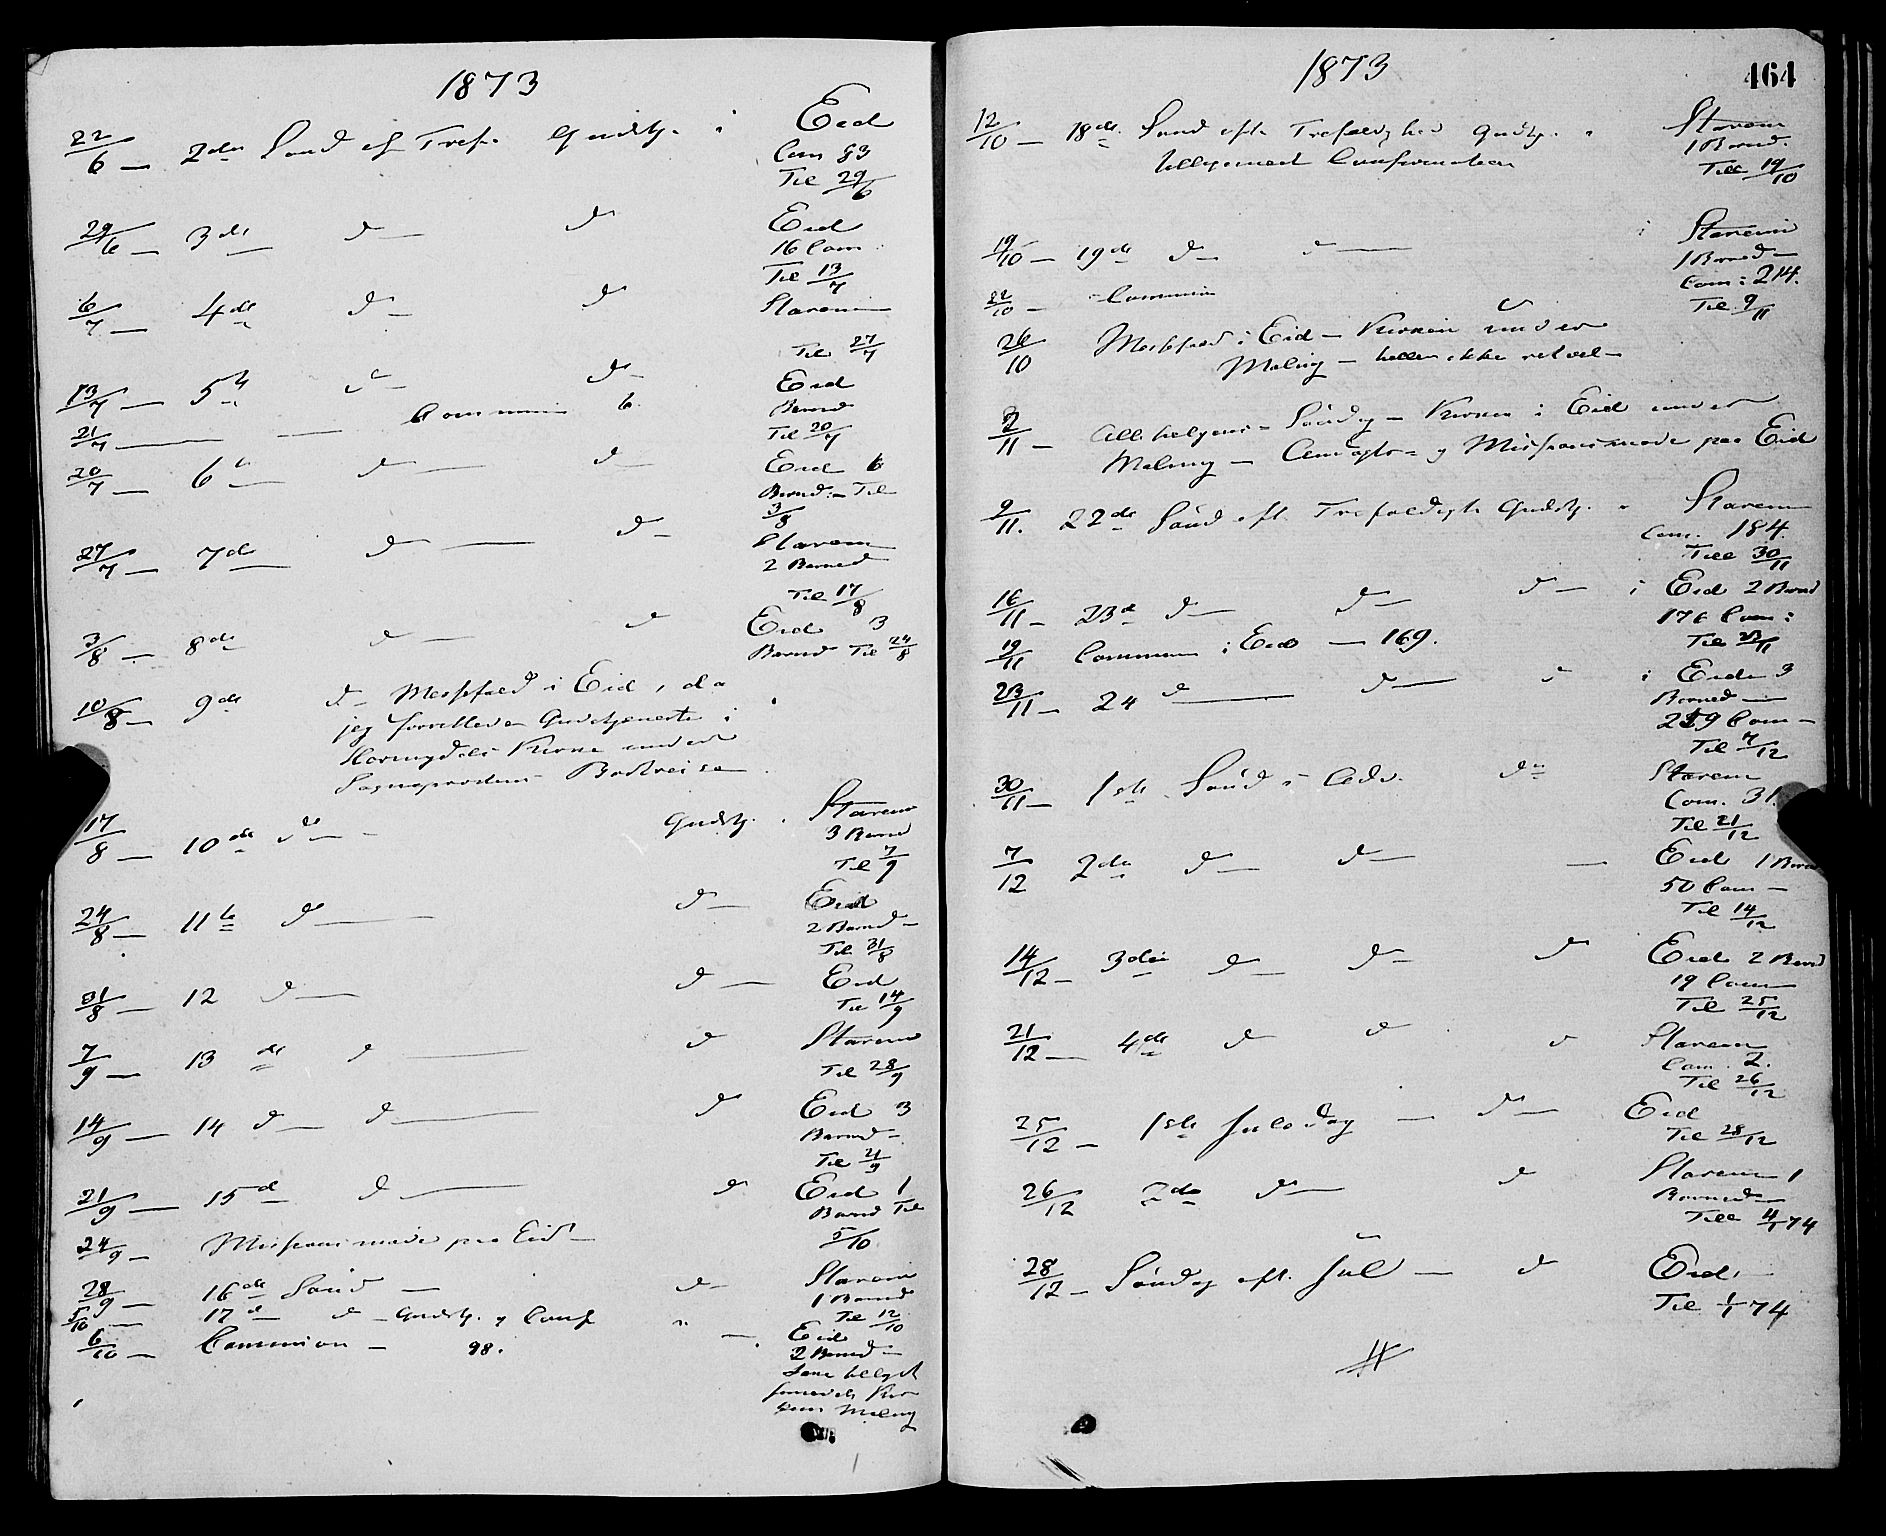 1873
22/6 — 2den Sønd ef Tref. Gudstj. i Eid
Com 83
Til 29/6
29/6 — 3de d— d Eid
16 Com.
Til 13/7
6/7 — 4de d— d Starem
Til 27/7
13/7 — 5te d— d— Eid
Barned
21/7 — — Communion 6.
Til 20/7
20/7 — 6te d— d— Eid 6
Barned: — Til
3/8
27/7 — 7de d— d— Starem
2 Barned
Til 17/8
3/8 — 8de d— d Eid 3
Barned Til 24/8
10/8 — 9de d— Messefald i Eid, da
jeg forrettede Gudstjeneste i
Horningdals Kirke under
Sogneprestens Bortreise
17/8 — 10de do— Gudstj. Starem
3 Barned
Til 7/9
24/8 — 11te d— d— Eid
2 Barned —
Til 31/8
31/8 — 12 d— d— Eid
Til 14/9
7/9 — 13de d— d Starem
Til 28/9
14/9 — 14 d— d— d Eid 3
Barned —
Til 21/9
21/9 — 15d d— d Eid 1
Barned Til
5/10
24/9 — Missionsmøde paa Eid —
28/9 — 16de Sønd — d— Starem
1 Barned
Til 12/10
5/10 — 17d d— Gudstj. og Conf " — Eid
6/10 — Communion — 98.
2 Barned —
Malng
1873
464
12/10 — 18de Sønd efter Trefoldighed Gudtj. i Starem
1 Barned.
Till 19/10
Confirmation
19/10 — 19de d— d— i Starem
1 Barned —
Com: 214.
Til 9/11
22/10 — Communion
26/10 Messefald i Eid — Kirken under
Maling — heller ikke
2/11 — Allehelgens Søndag — Kirken i Eid under
Maling — og Missionsmøde paa Eid
9/11. 22de Sønd eft. Trefoldigh. Gudstj. " Starem
Com. 184.
Till 30/11
16/11 — 23d d— d— d— i Eid 2 Barned
176 Com:
Til 23/11
19/11 Commun i Eid — 169.
23/11 — 24 d— d— d i Eid 3
Barned —
Com —
Til 7/12
30/11 — 1ste Sønd i Adv. do Starem
Com. 31.
Til 21/12
7/12 2den d— d— — Eid 1 Barned
50 Com —
Til 14/12
14/12 — 3die d— d— d Eid 2 Barned
19 Com
Til 25/12
21/12 — 4de d d d Starem
Com. 2.
Til 26/12
25/12 — 1ste Juledag — d— Eid
Til 28/12
26/12 2den d— d Starem 1
Barned
Till 4/1 74
28/12 — Søndag eft. Jul — d Eid. —
Til 1/1 74